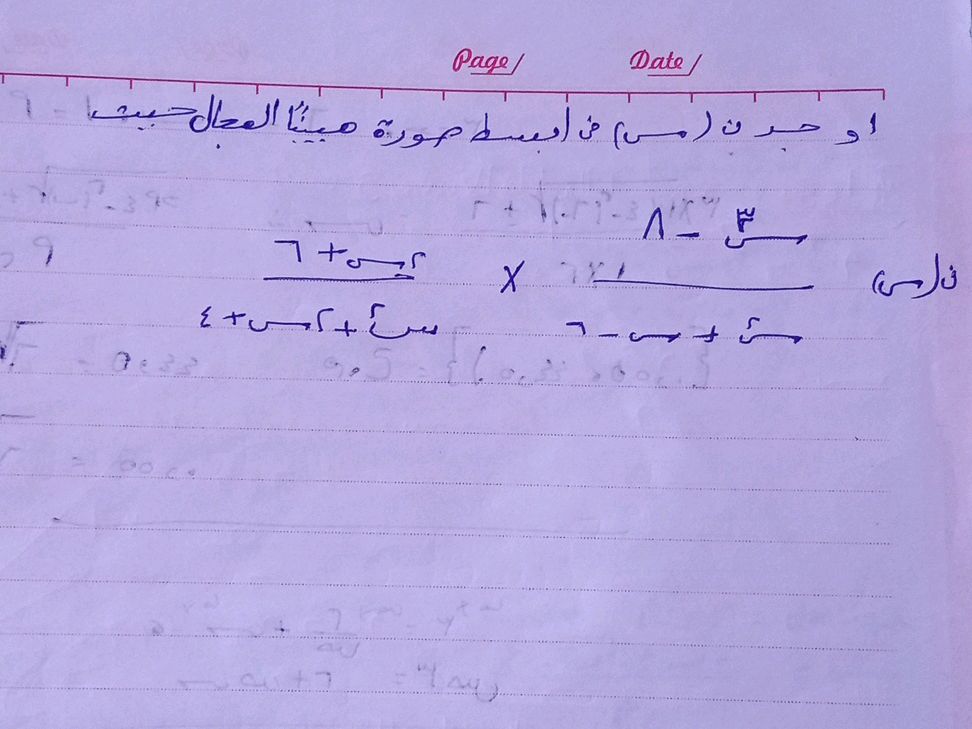 Page/ Date/
اوجد ن (س) في أبسط صورة مبينًا المجال حيث
ن(س) س³ - ٨ / س² + س - ٦ × ٢س + ٦ / س² + ٢س + ٤